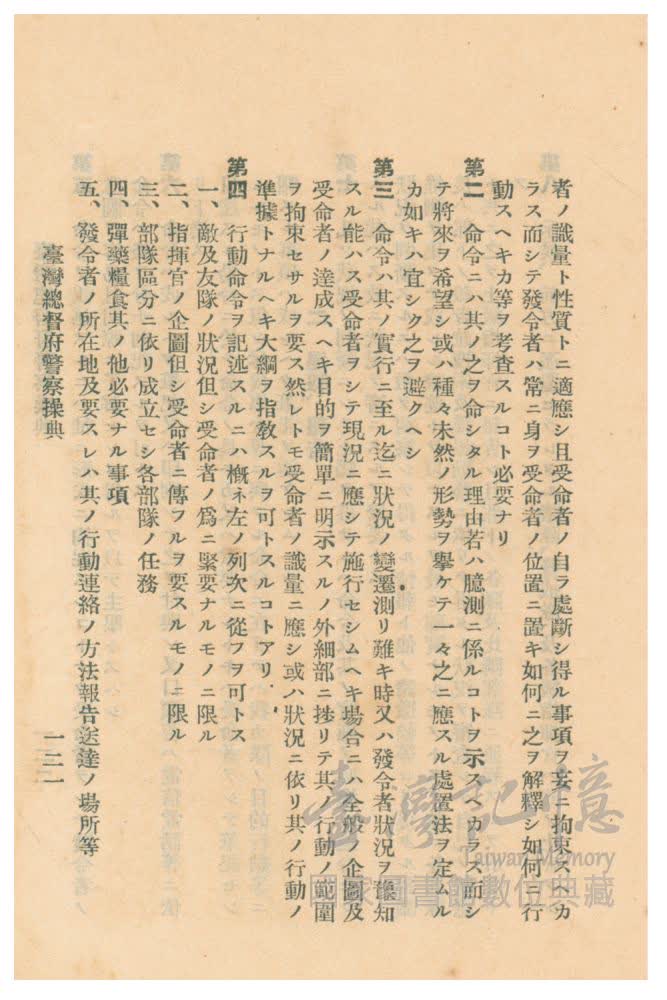 者ノ識量ト性質トニ適應シ且受命者ノ自ラ處斷シ得ル事項ヲ妄ニ拘束スヘカ
ラス而シテ發令者ハ常ニ身ヲ受命者ノ位置ニ置キ如何ニ之ヲ解釋シ如何ニ行
動スヘキカ等ヲ考査スルコト必要ナリ
第二 命令ニハ其ノ之ヲ命シタル理由若ハ臆測ニ係ルコトヲ示スヘカラス而シ
テ將來ヲ希望シ或ハ種々未然ノ形勢ヲ擧ケテ一々之ニ應スル處置法ヲ定ムル
カ如キハ宜シク之ヲ避クヘシ
第三 命令ハ其ノ實行ニ至ル迄ニ狀況ノ變遷測リ難キ時又ハ發令者狀況ヲ豫知
スル能ハス受命者ヲシテ現況ニ應シテ施行セシムヘキ場合ニハ全般ノ企圖及
受命者ノ達成スヘキ目的ヲ簡單ニ明示スルノ外細部ニ捗リテ其ノ行動ノ範圍
ヲ拘束セサルヲ要ス然レトモ受命者ノ識量ニ應シ或ハ狀況ニ依リ其ノ行動ノ
準據トナルヘキ大綱ヲ指敎スルヲ可トスルコトアリ
第四 行動命令ヲ記述スルニハ槪ネ左ノ列次ニ從フヲ可トス
一、敵及友隊ノ狀況但シ受命者ノ爲ニ緊要ナルモノニ限ル
二、指揮官ノ企圖但シ受命者ニ傳フルヲ要スルモノニ限ル
三、部隊區分ニ依リ成立セシ各部隊ノ任務
四、彈藥糧食其ノ他必要ナル事項
五、發令者ノ所在地及要スレハ其ノ行動連絡ノ方法報告送達ノ場所等
臺灣總督府警察操典
一二一
臺灣記憶
Taiwan Memory
國家圖書館數位典藏